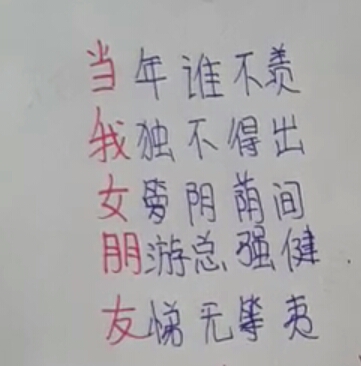 当年谁不羡
我独不得出
女阴荫间
朋游总强健
友悌无夷